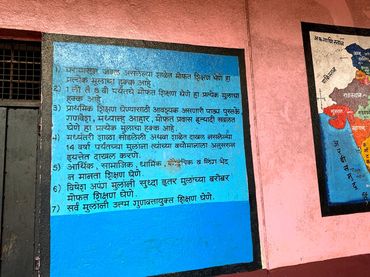 1) घरापासून जवळ असलेल्या शाळेत मोफत शिक्षण घेणे हा
प्रत्येक मुलाचा हक्क आहे.
2) १ ली ते ८ वी पर्यंतचे मोफत शिक्षण घेणे हा प्रत्येक मुलाचा
हक्क आहे
3) प्राथमिक शिक्षण घेण्यासाठी आवश्यक असणारी पाठ्य पुस्तके
गणवेश, मध्यान्ह आहार, मोफत प्रवास इत्यादी सवलत
घेणे हा प्रत्येक मुलाचा हक्क आहे.
4) मध्यंतरी शाळा सोडलेली अथवा दाखल नसलेल्या
14 वर्षा पर्यंतच्या मुलाला त्यांच्या वयोमानाला अनुसरून
इयत्तेत दाखल करणे.
5) आर्थिक, सामाजिक, धार्मिक, व लिंग भेद
न मानता शिक्षण घेणे.
6) विशेष अपंग मुलांना सुध्दा इतर मुलांच्या बरोबर
मोफत शिक्षण घेणे.
7) सर्व मुलांना उत्तम गुणवत्तायुक्त शिक्षण घेणे.
अफगाणिस्तान
अरबी समुद्र